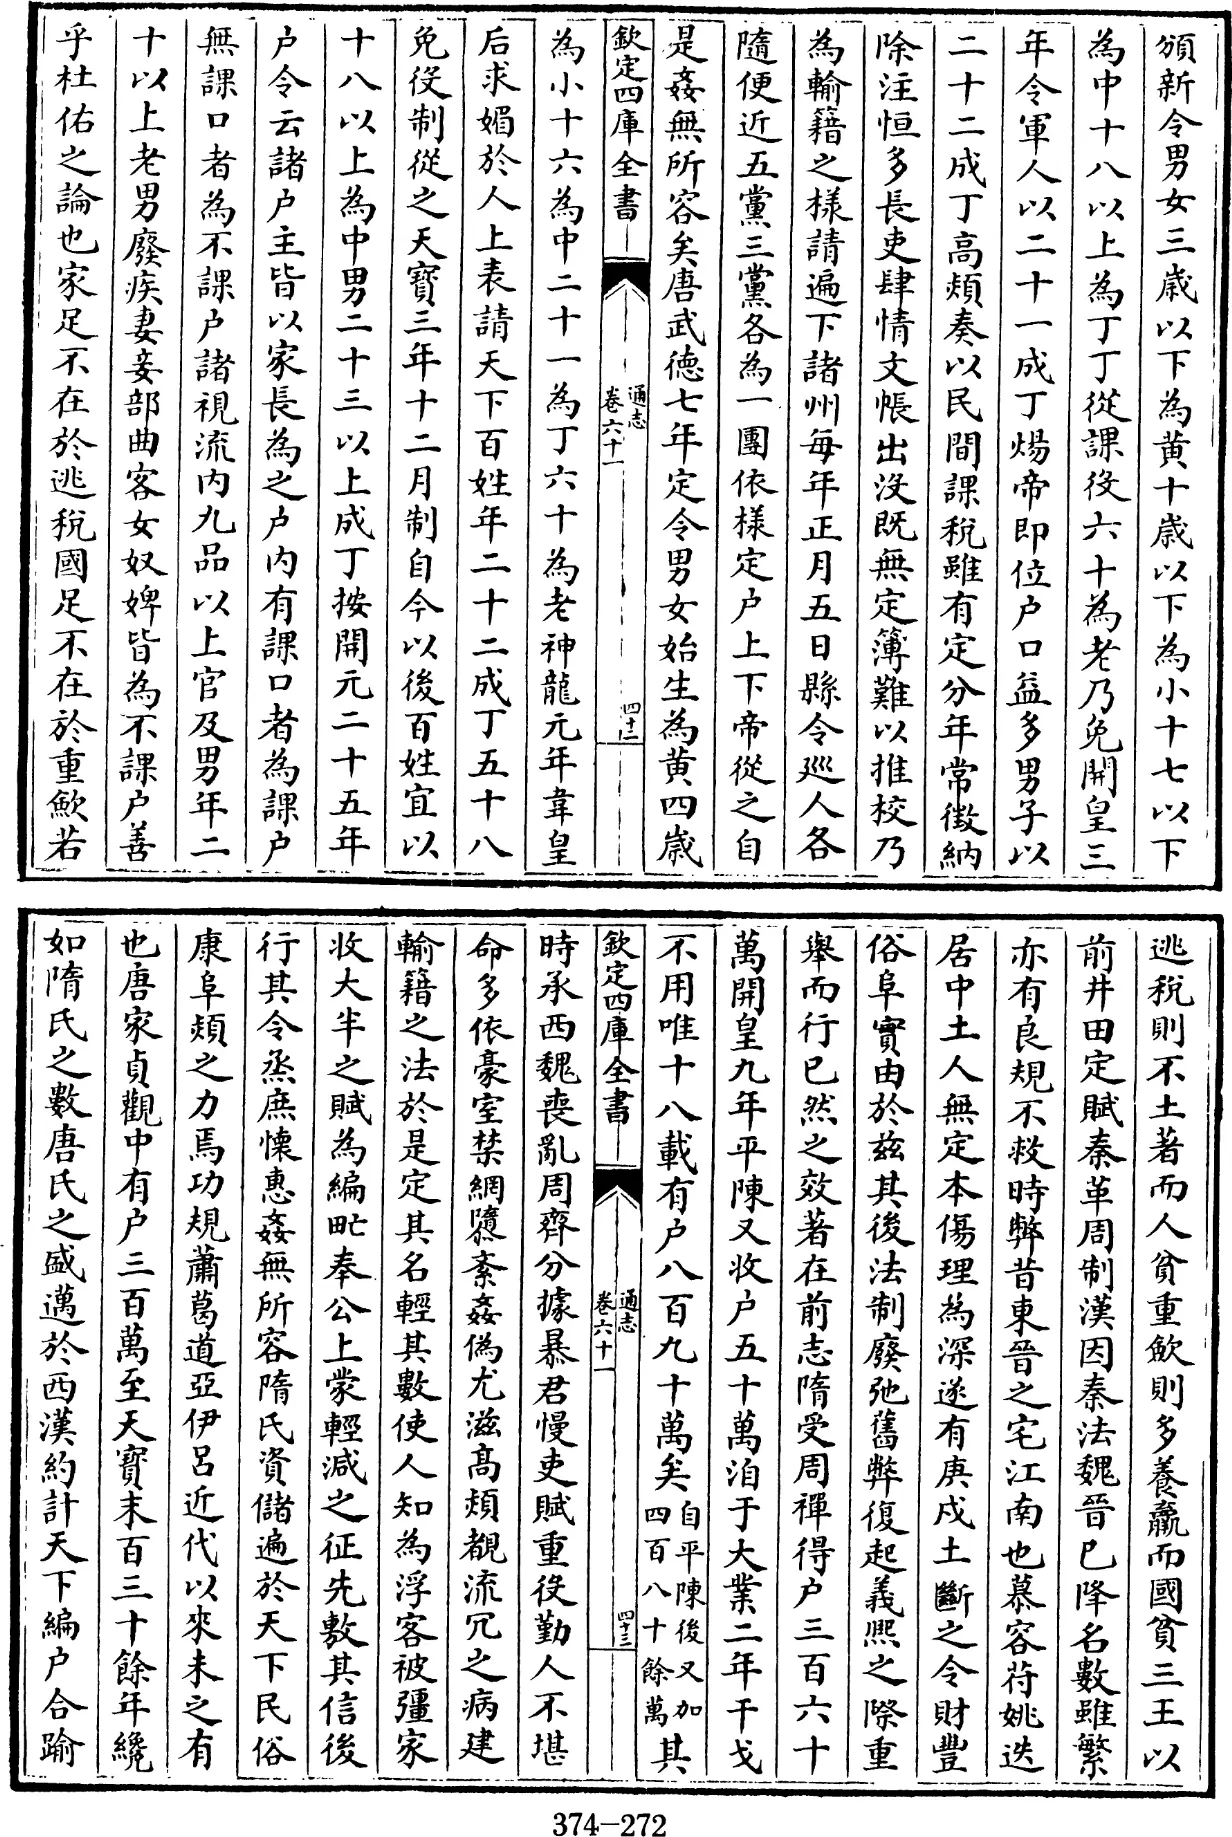 頒新令男女三歳以下為黄十歳以下為小十七以下
為中十八以上為丁丁從課役六十為老乃免開皇三
年令軍人以二十一成丁煬帝即位户口益多男子以
二十二成丁高熲奏以民間課税雖有定分年常徴納
除注恒多長吏肆情文帳出没既無定簿難以推校乃
為輸籍之様請遍下諸州每年正月五日縣令廵人各
隨便近五黨三黨各為一團依様定户上下帝從之自
是姦無所容矣唐武德七年定令男女始生為黄四歳
欽定四庫全書
通志
卷六十一
四十二
為小十六為中二十一為丁六十為老神龍元年韋皇
后求媚於人上表請天下百姓年二十二成丁五十八
免役制從之天寳三年十二月制自今以後百姓宜以
十八以上為中男二十三以上成丁按開元二十五年
户令云諸户主皆以家長為之户内有課口者為課户
無課口者為不課户諸視流内九品以上官及男年二
十以上老男廢疾妻妾部曲客女奴婢皆為不課户善
乎杜佑之論也家足不在於逃税國足不在於重歛若
逃税則不土著而人貧重歛則多養羸而國貧三王以
前井田定賦秦革周制漢因秦法魏晉已降名數雖繁
亦有良規不救時弊昔東晉之宅江南也慕容苻姚迭
居中土人無定本傷理為深遂有庚戍土斷之令財豐
俗阜實由於兹其後法制廢弛舊弊復起義熈之際重
舉而行已然之效著在前志隋受周禪得户三百六十
萬開皇九年平陳又收户五十萬洎于大業二年干戈
不用唯十八載有户八百九十萬矣自平陳後又加四百八十餘萬其
欽定四庫全書
通志
卷六十一
四十三
時承西魏喪亂周齊分據暴君慢吏賦重役勤人不堪
命多依豪室禁網隳紊姦偽尤滋髙熲覩流冗之病建
輸籍之法於是定其名輕其數使人知為浮客被彊家
收大半之賦為編甿奉公上蒙輕減之征先敷其信後
行其令烝庶懷惠姦無所容隋氏資儲遍於天下民俗
康阜熲之力焉功規蕭葛道亞伊呂近代以來未之有
也唐家貞觀中有户三百萬至天寳末百三十餘年纔
如隋氏之數唐氏之盛邁於西漢約計天下編户合踰
374-272